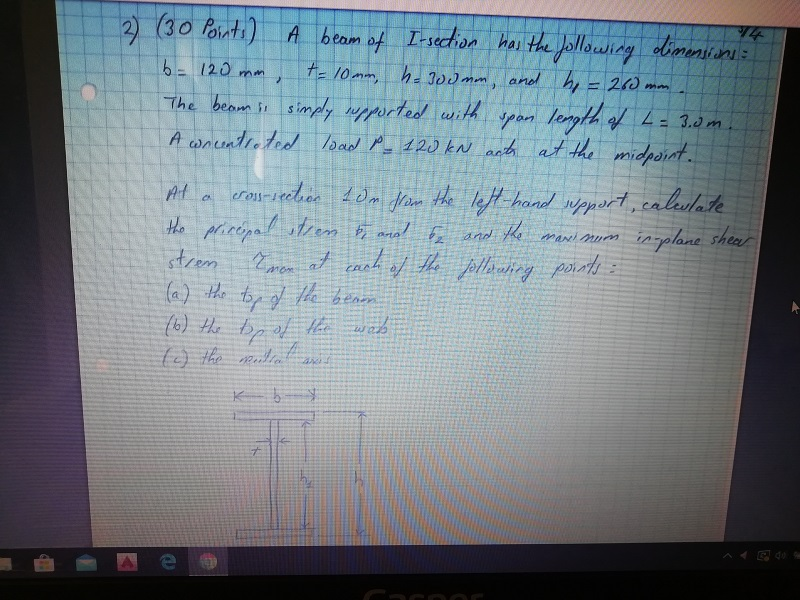 2) (30 Points) A beam of I-section has the following dimensions:
b = 120 mm, t = 10 mm, h = 300 mm, and h₁ = 260 mm.
The beam is simply supported with span length of L = 3.0 m.
A concentrated load P = 120 kN acts at the midpoint.
At a cross-section 1.0 m from the left-hand support, calculate
the principal stress σ₁ and σ₂ and the maximum in-plane shear
stress τmax at each of the following points:
(a) the top of the beam
(b) the top of the web
(c) the neutral axis
b
t
h₁
h
Casper